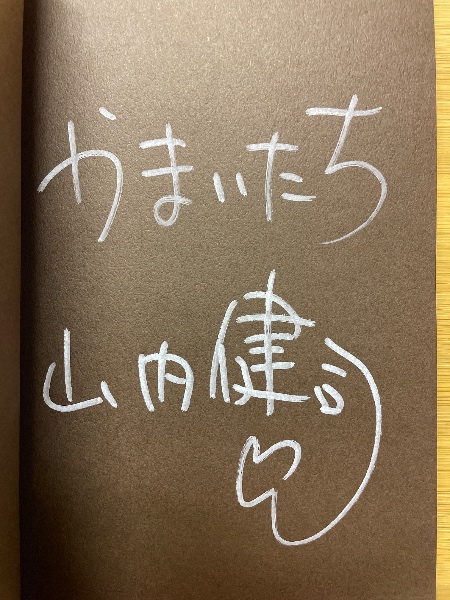 かまいたち
山内健司